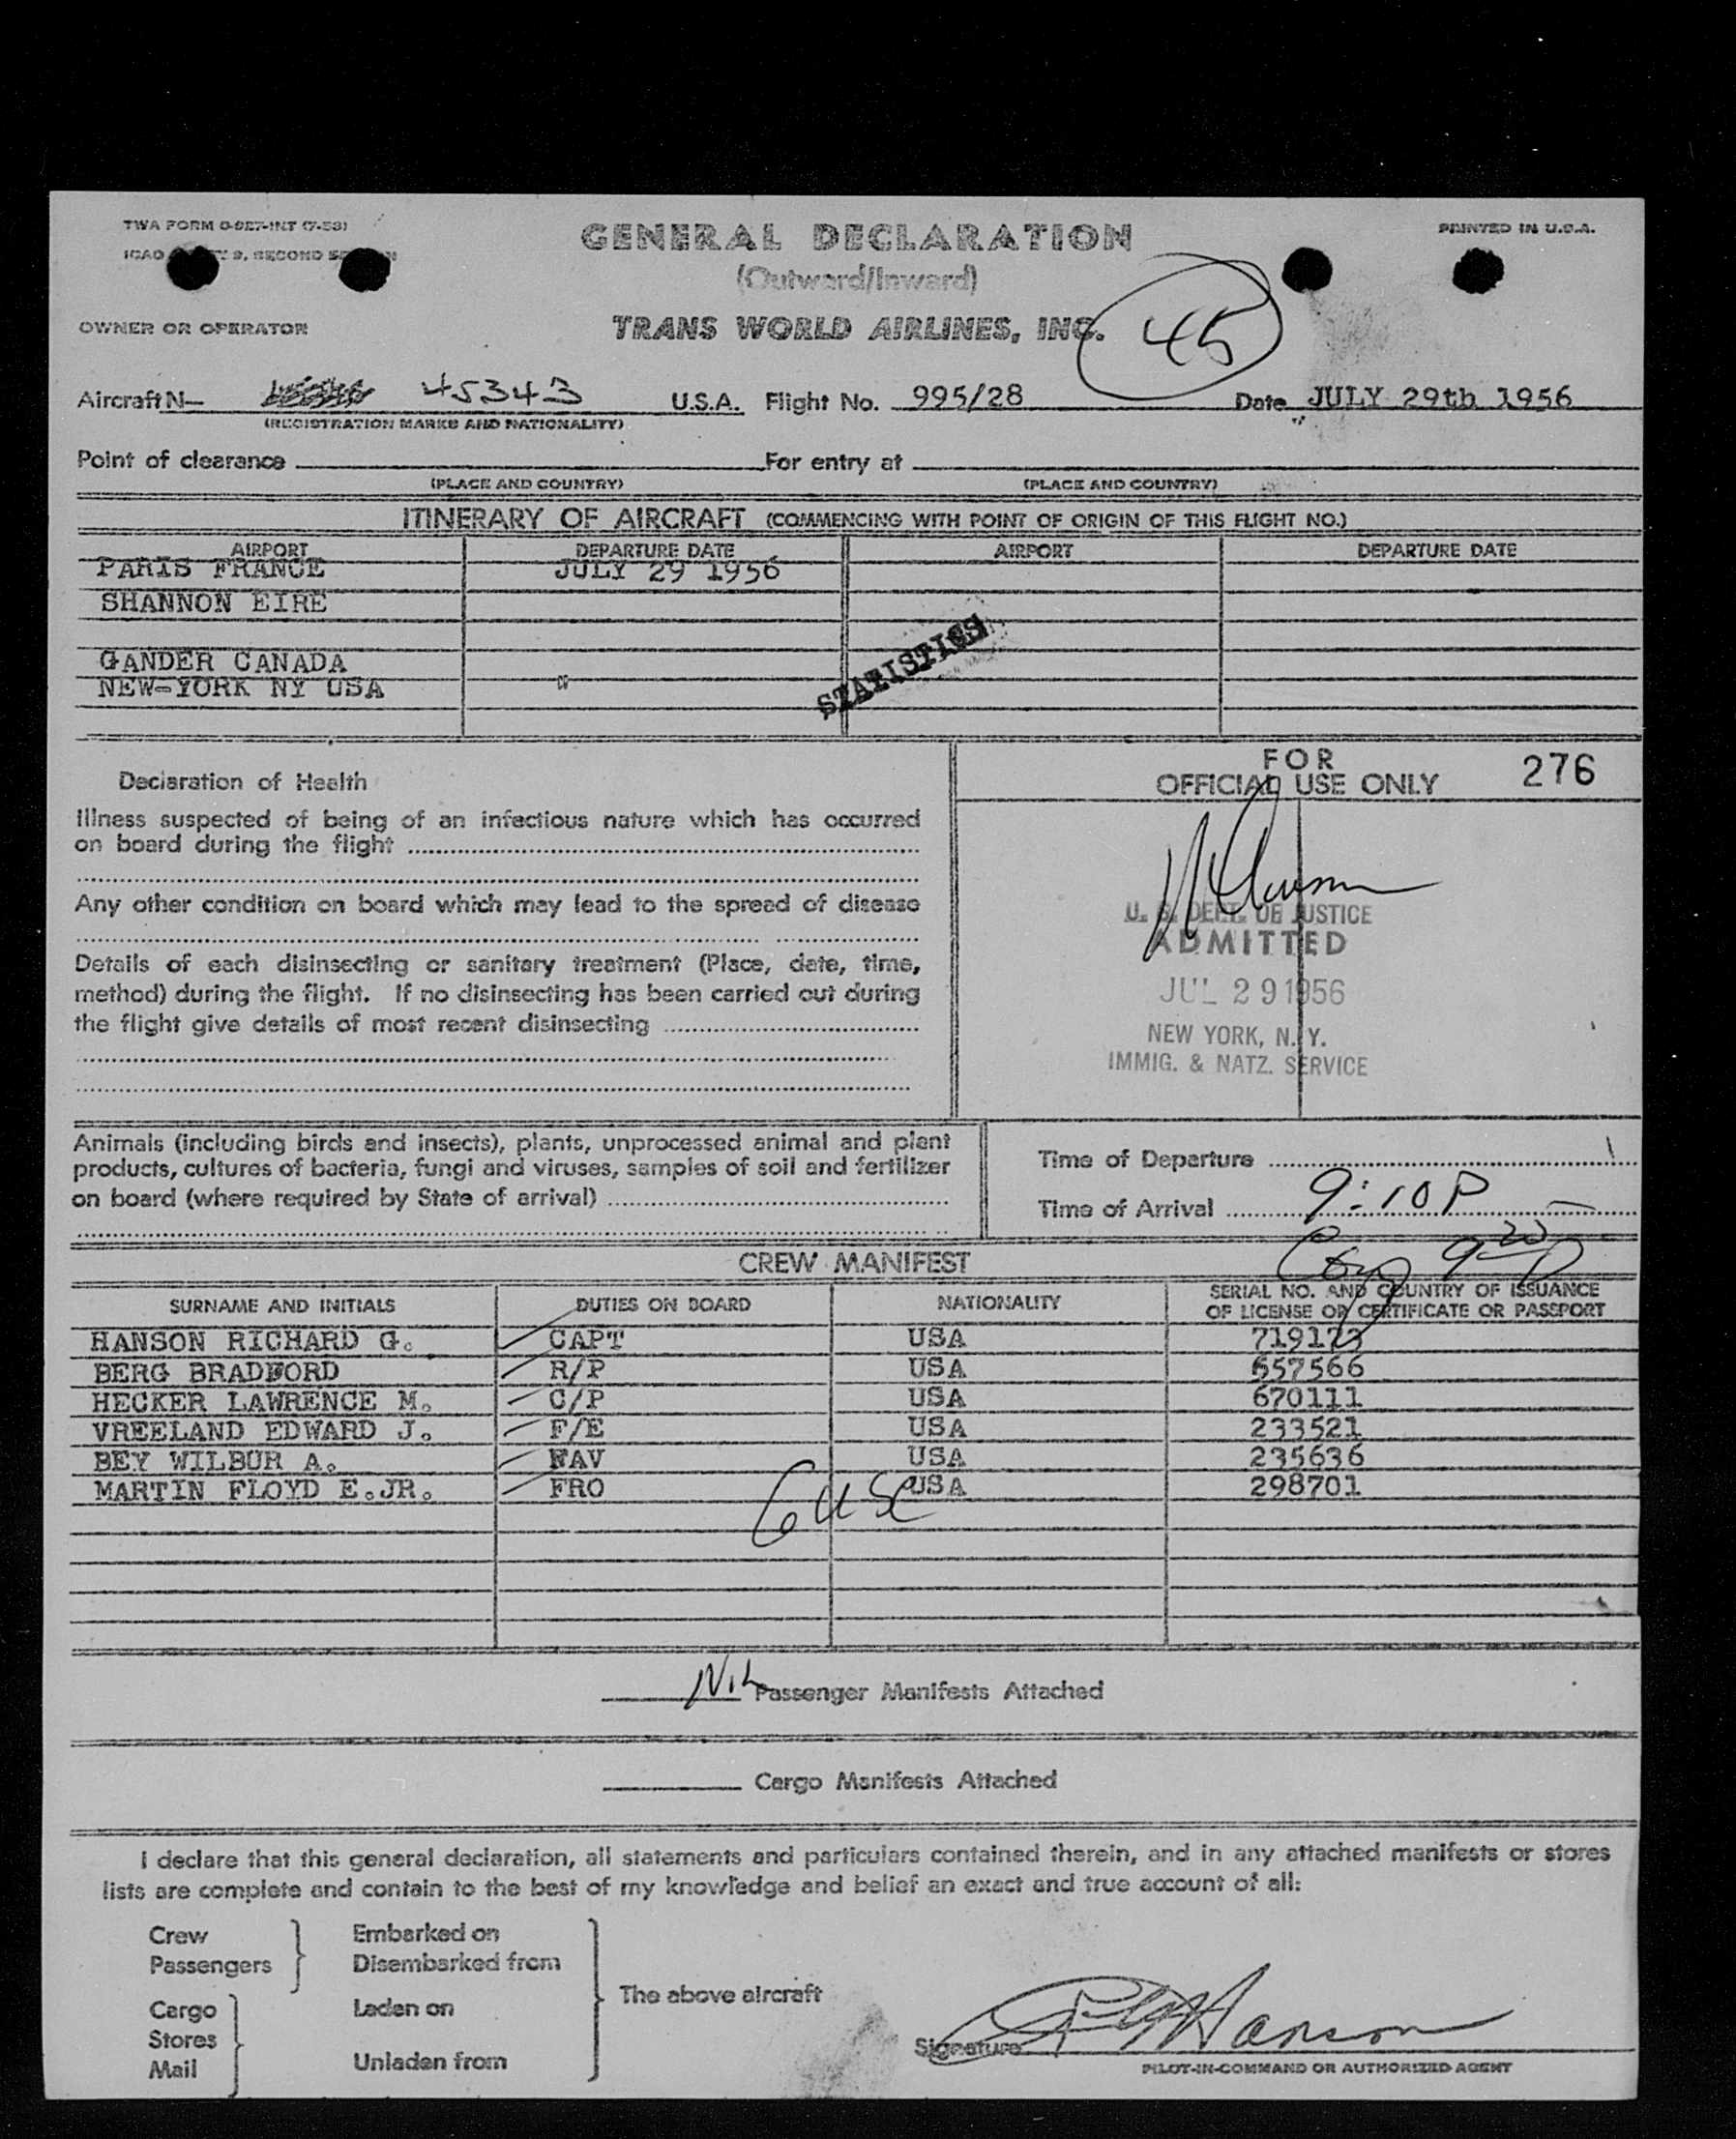 TWA FORM O-927-INT (7-53)
PRINTED IN U.S.A.
GENERAL DECLARATION
ICAO 9, SECOND
(Outward/Inward)
OWNER OR OPERATOR
TRANS WORLD AIRLINES, INC.
45
Aircraft N— 45343 U.S.A. Flight No. 995/28 Date JULY 29th 1956
(REGISTRATION MARKS AND NATIONALITY)
Point of clearance For entry at
(PLACE AND COUNTRY) (PLACE AND COUNTRY)
ITINERARY OF AIRCRAFT (COMMENCING WITH POINT OF ORIGIN OF THIS FLIGHT NO.)
AIRPORT DEPARTURE DATE AIRPORT DEPARTURE DATE
PARIS FRANCE JULY 29 1956
SHANNON EIRE
STATISTICS
GANDER CANADA
NEW-YORK NY USA
FOR
OFFICIAL USE ONLY 276
Declaration of Health
Illness suspected of being of an infectious nature which has occurred
on board during the flight
Any other condition on board which may lead to the spread of disease
Details of each disinsecting or sanitary treatment (Place, date, time,
method) during the flight. If no disinsecting has been carried out during
the flight give details of most recent disinsecting
U. S. DEPT. OF JUSTICE
ADMITTED
JUL 29 1956
NEW YORK, N. Y.
IMMIG. & NATZ. SERVICE
Animals (including birds and insects), plants, unprocessed animal and plant
products, cultures of bacteria, fungi and viruses, samples of soil and fertilizer
on board (where required by State of arrival)
Time of Departure
Time of Arrival 9:10 P
9 20 P
CREW MANIFEST
SURNAME AND INITIALS DUTIES ON BOARD NATIONALITY SERIAL NO. AND COUNTRY OF ISSUANCE
OF LICENSE OR CERTIFICATE OR PASSPORT
HANSON RICHARD G. CAPT USA 719173
BERG BRADFORD R/P USA 557566
HECKER LAWRENCE M. C/P USA 670111
VREELAND EDWARD J. F/E USA 233521
BEY WILBUR A. NAV USA 235636
MARTIN FLOYD E.JR. FRO USA 298701
6 USC
Nil Passenger Manifests Attached
Cargo Manifests Attached
I declare that this general declaration, all statements and particulars contained therein, and in any attached manifests or stores
lists are complete and contain to the best of my knowledge and belief an exact and true account of all:
Crew Embarked on
Passengers Disembarked from
The above aircraft
Cargo Laden on
Stores
Mail Unladen from
Signature R G Hanson
PILOT-IN-COMMAND OR AUTHORIZED AGENT